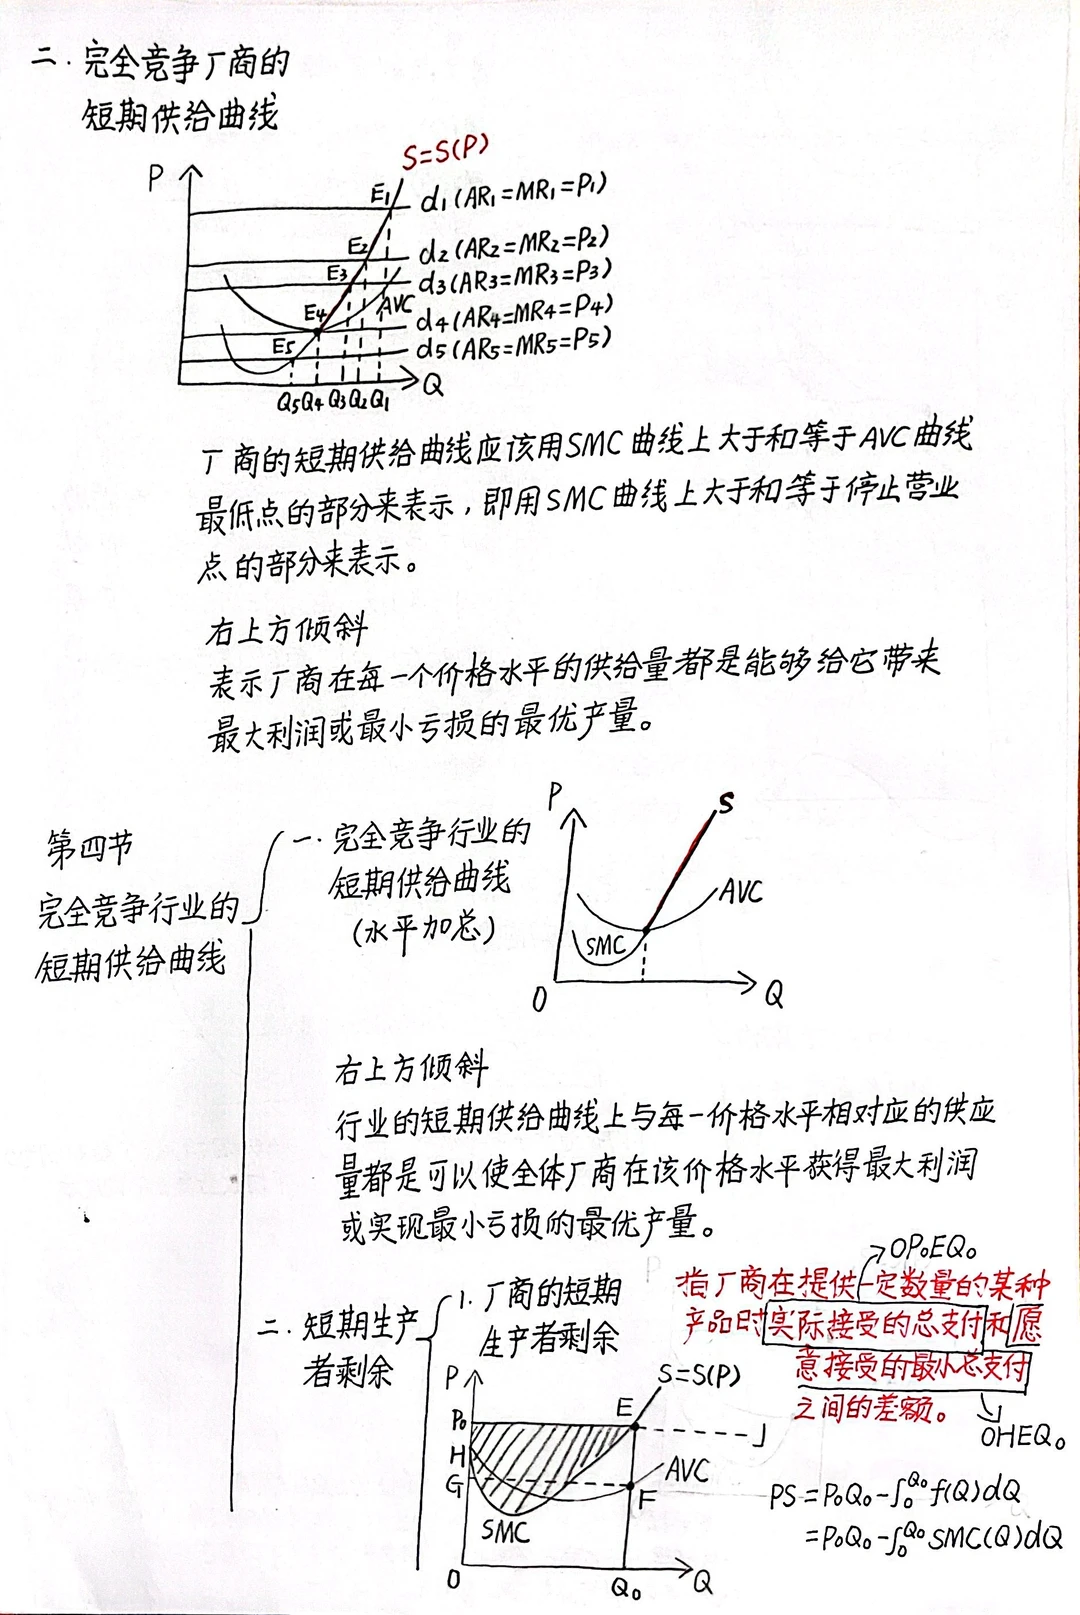 二.完全竞争厂商的
短期供给曲线
S=S(P)
P
E₁
d₁(AR₁=MR₁=P₁)
E₂
d₂(AR₂=MR₂=P₂)
E₃
d₃(AR₃=MR₃=P₃)
AVC
E₄
d₄(AR₄=MR₄=P₄)
E₅
d₅(AR₅=MR₅=P₅)
Q
Q₅Q₄Q₃Q₂Q₁
厂商的短期供给曲线应该用SMC曲线上大于和等于AVC曲线
最低点的部分来表示,即用SMC曲线上大于和等于停止营业
点的部分来表示。
右上方倾斜
表示厂商在每一个价格水平的供给量都是能够给它带来
最大利润或最小亏损的最优产量。
第四节
完全竞争行业的
短期供给曲线
一.完全竞争行业的
短期供给曲线
(水平加总)
P
S
AVC
SMC
O
Q
右上方倾斜
行业的短期供给曲线上与每一价格水平相对应的供应
量都是可以使全体厂商在该价格水平获得最大利润
或实现最小亏损的最优产量。
二.短期生产
者剩余
1.厂商的短期
生产者剩余
OP₀EQ₀
指厂商在提供一定数量的某种
产品时实际接受的总支付和愿
意接受的最小总支付
之间的差额。
OHEQ₀
P
S=S(P)
P₀
E
d
H
G
AVC
F
SMC
O
Q₀
Q
PS=P₀Q₀-∫₀^Q₀ f(Q)dQ
=P₀Q₀-∫₀^Q₀ SMC(Q)dQ